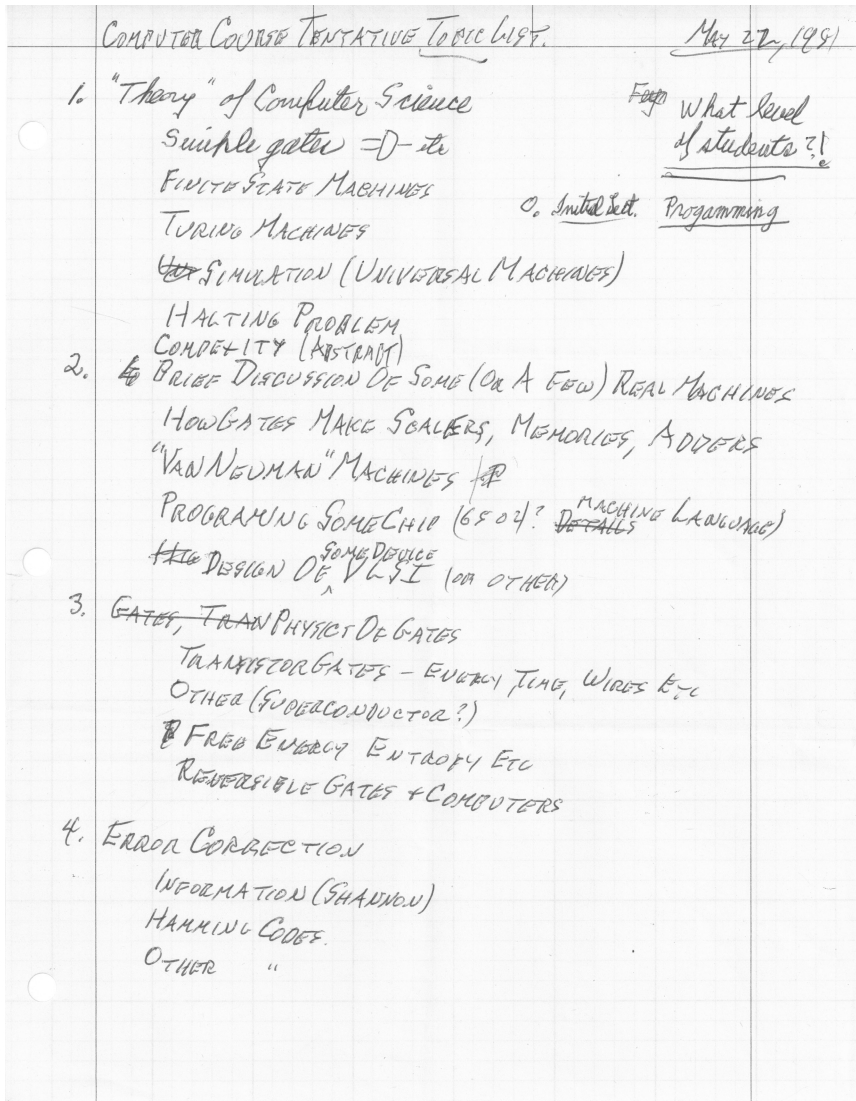 COMPUTER COURSE TENTATIVE TOPIC LIST. MAY 22, 1981
1. "Theory" of Computer Science
What level
of students?!
Simple gates =D- etc
FINITE STATE MACHINES
0. Initial Sect. Progamming
TURING MACHINES
SIMULATION (UNIVERSAL MACHINES)
HALTING PROBLEM
COMPEXITY (ABSTRACT)
2. BRIEF DISCUSSION OF SOME (OR A FEW) REAL MACHINES
HOW GATES MAKE SCALERS, MEMORIES, ADDERS
"VAN NEUMAN" MACHINES
PROGRAMING SOME CHIP (6502)? DETAILS MACHINE LANGUAGE)
DESIGN OF SOME DEVICE VLSI (OR OTHER)
3. GATES, TRAN PHYSICS OF GATES
TRANSISTOR GATES - ENERGY, TIME, WIRES ETC
OTHER (SUPERCONDUCTOR?)
FREE ENERGY ENTROPY ETC
REVERSIBLE GATES + COMPUTERS
4. ERROR CORRECTION
INFORMATION (SHANNON)
HAMMING CODES.
OTHER "